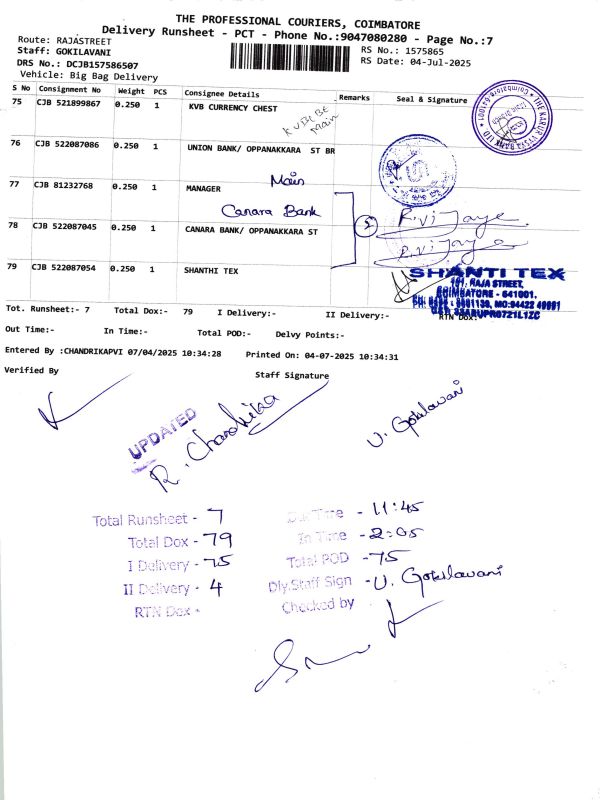 THE PROFESSIONAL COURIERS, COIMBATORE
Delivery Runsheet - PCT - Phone No.:9047080280 - Page No.:7
Route: RAJASTREET
Staff: GOKILAVANI
RS No.: 1575865
DRS No.: DCJB157586507
RS Date: 04-Jul-2025
Vehicle: Big Bag Delivery
S No Consignment No Weight PCS Consignee Details Remarks Seal & Signature
75 CJB 521899867 0.250 1 KVB CURRENCY CHEST
KVB BE
Main
76 CJB 522087086 0.250 1 UNION BANK/ OPPANAKKARA ST BR
77 CJB 81232768 0.250 1 MANAGER
Main
Canara Bank
78 CJB 522087045 0.250 1 CANARA BANK/ OPPANAKKARA ST
R.Vijaye
R.Vijaye
79 CJB 522087054 0.250 1 SHANTHI TEX
SHANTI TEX
RAJA STREET,
COIMBATORE - 641001.
Tot. Runsheet:- 7 Total Dox:- 79 I Delivery:- II Delivery:- RTN Dox:
Out Time:- In Time:- Total POD:- Delvy Points:-
Entered By :CHANDRIKAPVI 07/04/2025 10:34:28 Printed On: 04-07-2025 10:34:31
Verified By Staff Signature
UPDATED
R. Chandrika
U. Gokilavani
Total Runsheet - 7
Total Dox - 79
I Delivery - 75
II Delivery - 4
RTN Dox -
Out Time - 11:45
In Time - 2:05
Total POD - 75
Dly.Staff Sign - U. Gokilavani
Checked by